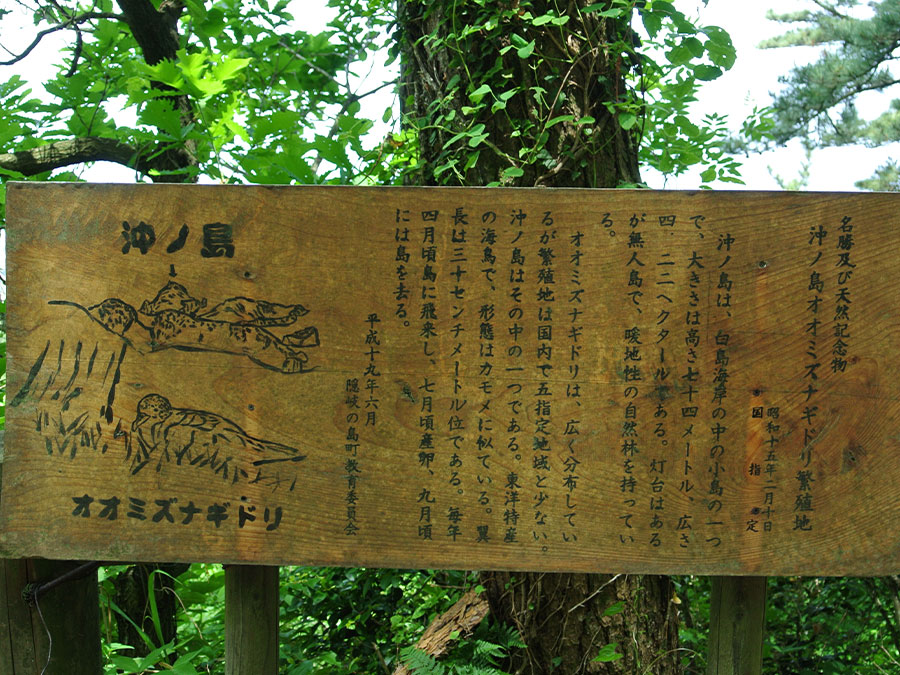 名勝及び天然記念物
沖ノ島オオミズナギドリ繁殖地
昭和十五年二月十日
国指定
沖ノ島は、白島海岸の中の小島の一つ
で、大きさは高さ七十四メートル、広さ
四.二二ヘクタールである。灯台はある
が無人島で、暖地性の自然林を持ってい
る。
オオミズナギドリは、広く分布してい
るが繁殖地は国内で五指定地域と少ない。
沖ノ島はその中の一つである。東洋特産
の海鳥で、形態はカモメに似ている。翼
長は三十センチメートル位である。毎年
四月頃島に飛来し、七月頃産卵、九月頃
には島を去る。
平成十九年六月
隠岐の島町教育委員会
沖ノ島
↓
オオミズナギドリ